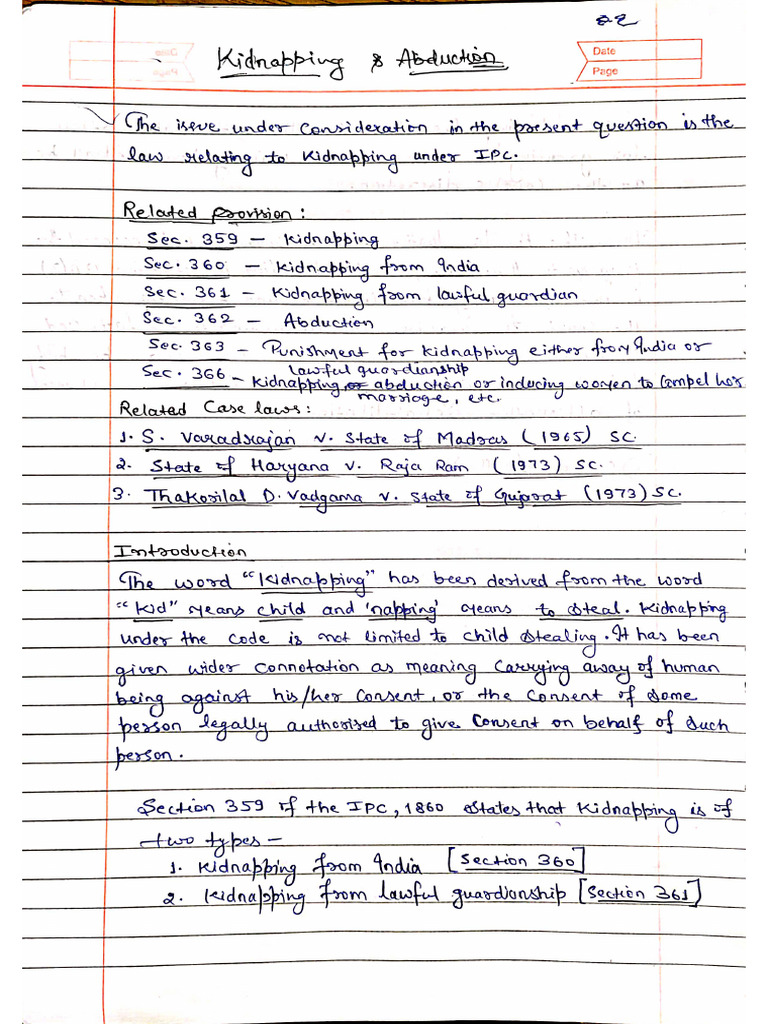 Kidnapping & Abduction
Date
Page
The issue under consideration in the present question is the
law relating to kidnapping under IPC.
Related provision:
Sec. 359 — Kidnapping
Sec. 360 — Kidnapping from India
Sec. 361 — Kidnapping from lawful guardian
Sec. 362 — Abduction
Sec. 363 — Punishment for kidnapping either from India or
lawful guardianship
Sec. 366 — Kidnapping, abduction or inducing women to Compel her
marriage, etc.
Related Case laws:
1. S. Varadrajan v. State of Madras (1965) SC.
2. State of Haryana v. Raja Ram (1973) SC.
3. Thakorilal D. Vadgama v. State of Gujarat (1973) SC.
Introduction
The word "kidnapping" has been derived from the word
"kid" means child and 'napping' means to steal. Kidnapping
under the code is not limited to child stealing. It has been
given wider connotation as meaning Carrying away of human
being against his/her Consent, or the Consent of some
person legally authorised to give Consent on behalf of such
person.
Section 359 of the IPC, 1860 states that Kidnapping is of
two types —
1. Kidnapping from India [Section 360]
2. Kidnapping from lawful guardianship [Section 361]